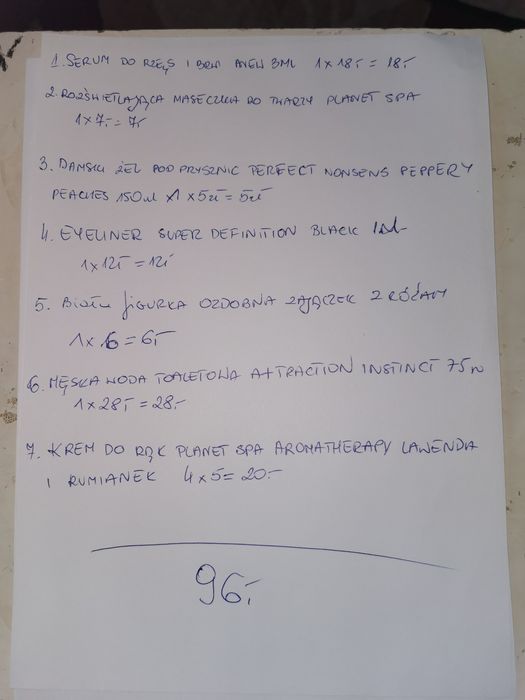 1. SERUM DO RZĘS I BRWI AVEN 3ML 1 x 18,- = 18,-
2. ROZŚWIETLAJĄCA MASECZKA DO TWARZY PLANET SPA
1 x 7,- = 7,-
3. DAMSKI ŻEL POD PRYSZNIC PERFECT NONSENS PEPPERY
PEACHES 150ml 1 x 5zł = 5zł
4. EYELINER SUPER DEFINITION BLACK 1ml
1 x 12,- = 12,-
5. BIAŁA FIGURKA OZDOBNA ZAJĄCZEK Z RÓŻAMI
1 x 6 = 6,-
6. MĘSKA WODA TOALETOWA ATTRACTION INSTINCT 75m
1 x 28,- = 28,-
7. KREM DO RĄK PLANET SPA AROMATHERAPY LAWENDA
I RUMIANEK 4 x 5 = 20,-
96,-